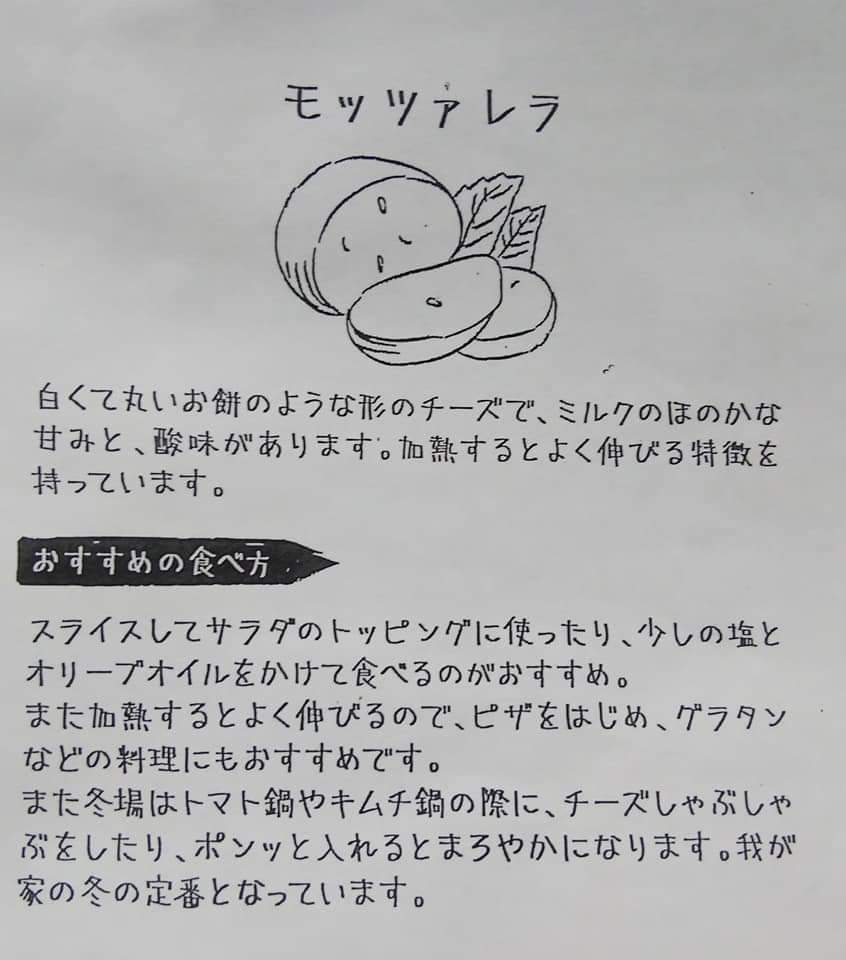 モッツァレラ
白くて丸いお餅のような形のチーズで、ミルクのほのかな
甘みと、酸味があります。加熱するとよく伸びる特徴を
持っています。
おすすめの食べ方
スライスしてサラダのトッピングに使ったり、少しの塩と
オリーブオイルをかけて食べるのがおすすめ。
また加熱するとよく伸びるので、ピザをはじめ、グラタン
などの料理にもおすすめです。
また冬場はトマト鍋やキムチ鍋の際に、チーズしゃぶしゃ
ぶをしたり、ポンッと入れるとまろやかになります。我が
家の冬の定番となっています。